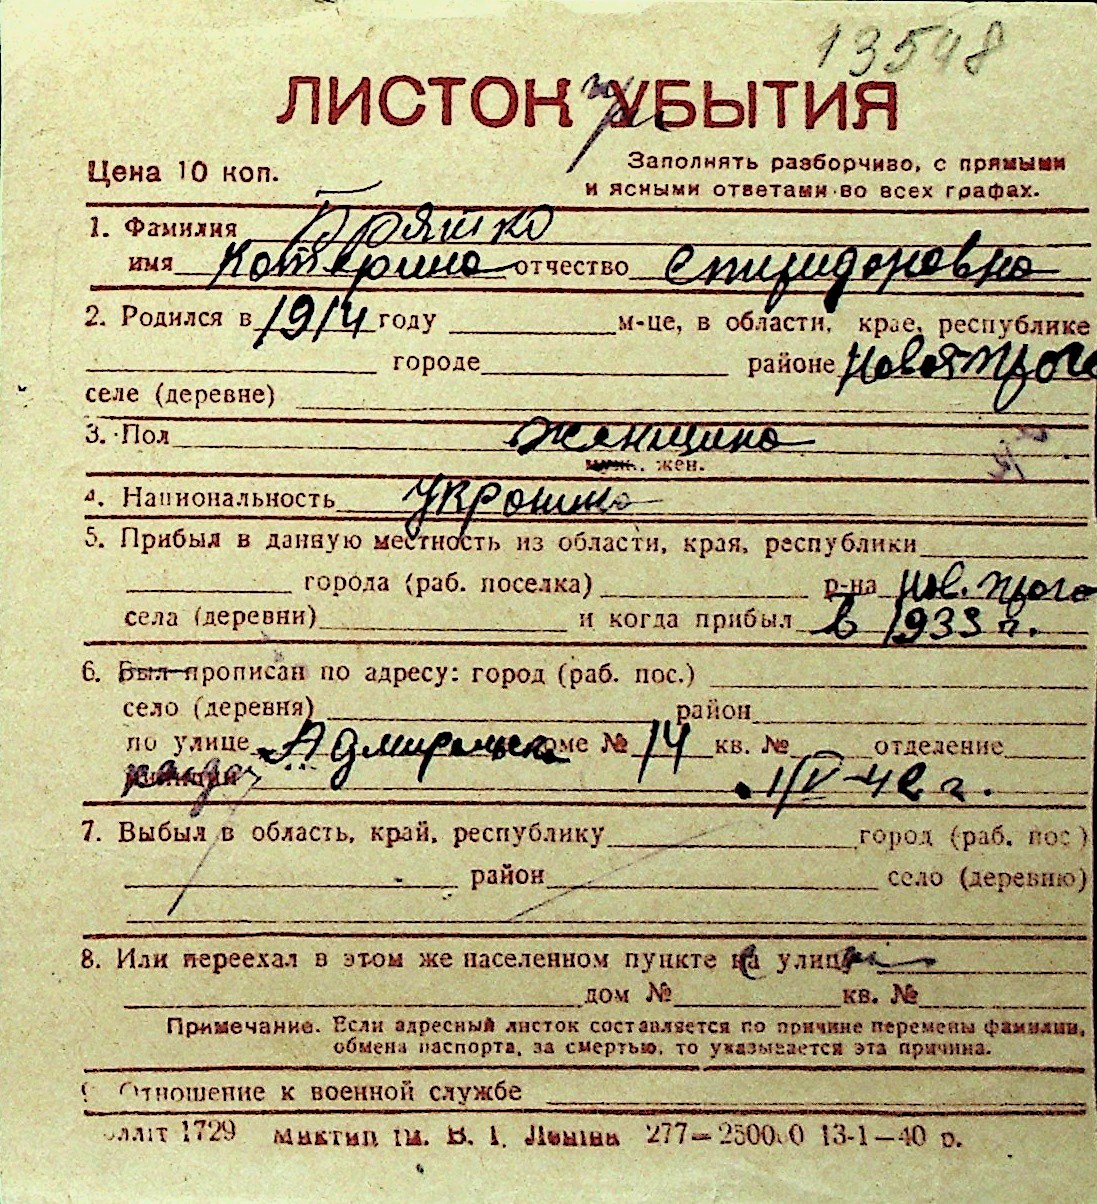 13548
ЛИСТОК УБЫТИЯ
Цена 10 коп.
Заполнять разборчиво, с прямыми
и ясными ответами во всех графах.
1. Фамилия Бряшко
имя Катерина отчество Спиридоновна
2. Родился в 1914 году м-це, в области, крае, республике
городе районе Новая-Прага
селе (деревне)
3. Пол женщина
муж. жен.
4. Национальность Украинка
5. Прибыл в данную местность из области, края, республики
города (раб. поселка) р-на Нов. Прага
села (деревни) и когда прибыл в 1933 г.
6. Был прописан по адресу: город (раб. пос.)
село (деревня) район
по улице Адмиральск доме № 14 кв. № отделение
милиции 1/IV-42 г.
7. Выбыл в область, край, республику город (раб. пос.)
район село (деревню)
8. Или переехал в этом же населенном пункте улицы
дом № кв. №
Примечание. Если адресный листок составляется по причине перемены фамилии,
обмена паспорта, за смертью, то указывается эта причина.
9. Отношение к военной службе
1729 ім. В. І. Леніна 277— 13-1—40 р.